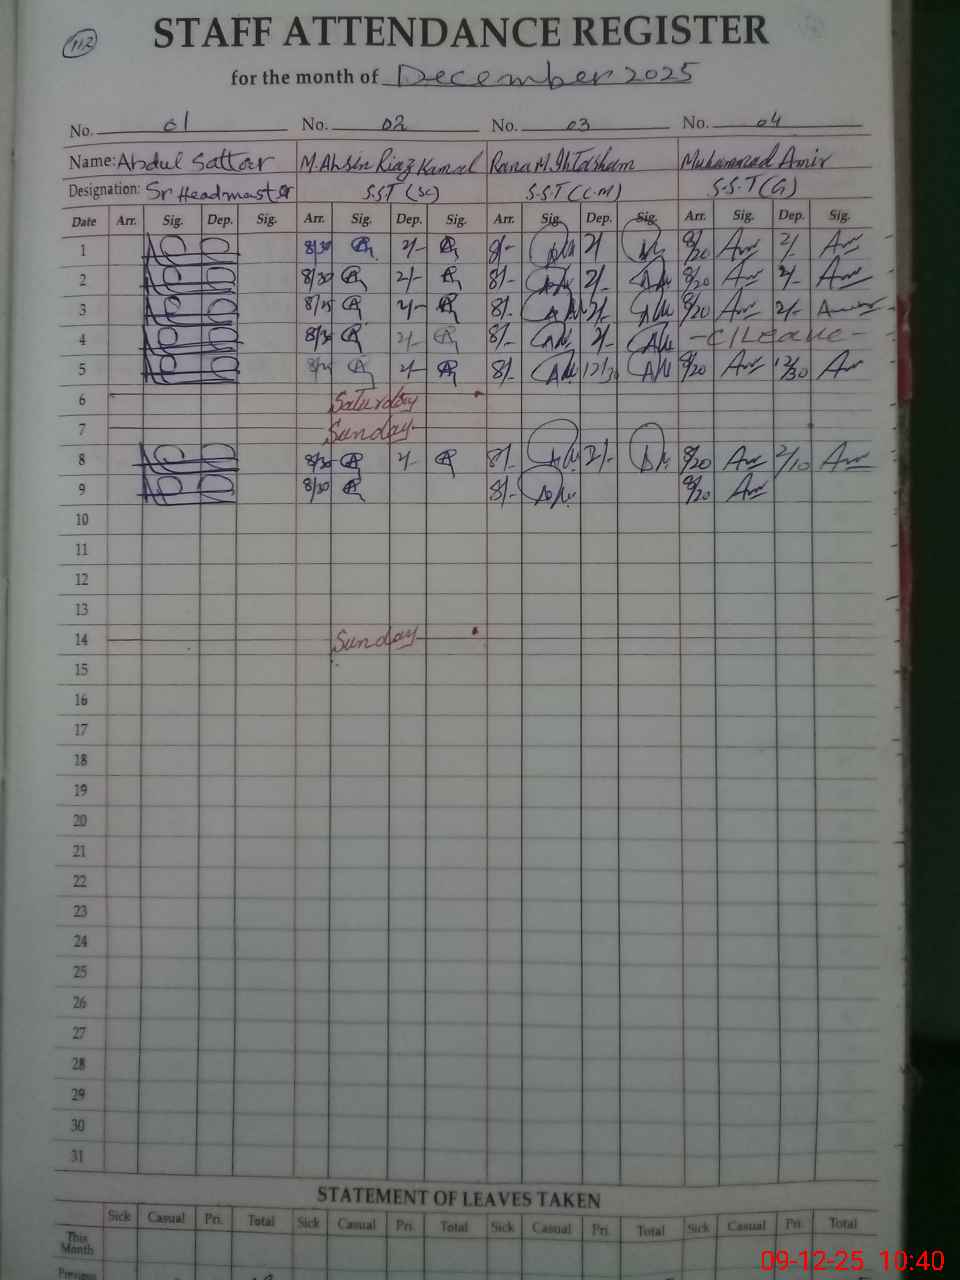 112
STAFF ATTENDANCE REGISTER
for the month of December 2025
No. 01 No. 02 No. 03 No. 04
Name: Abdul Sattar M. Ahsin Riaz Kamal Rana M. Ihtasham Muhammad Amir
Designation: Sr Headmaster S.ST (SC) S.S.T (C.M) S.S.T (G)
Date Arr. Sig. Dep. Sig. Arr. Sig. Dep. Sig. Arr. Sig. Dep. Sig. Arr. Sig. Dep. Sig.
1 8/30 2/- 8/- 2/ 8/20 2/-
2 8/30 2/- 8/- 2/- 8/20 2/-
3 8/25 2/- 8/- 2/- 8/20 2/-
4 8/30 2/- 8/- 2/- -C/Leave-
5 2/- 8/- 12/30 8/20 12/30
6 Saturday
7 Sunday
8 8/30 2/- 8/- 2/- 8/20 2/10
9 8/30 8/- 8/20
10
11
12
13
14 Sunday
15
16
17
18
19
20
21
22
23
24
25
26
27
28
29
30
31
STATEMENT OF LEAVES TAKEN
Sick Casual Pri. Total Sick Casual Pri. Total Sick Casual Pri. Total Sick Casual Pri. Total
This Month
Previous
09-12-25 10:40